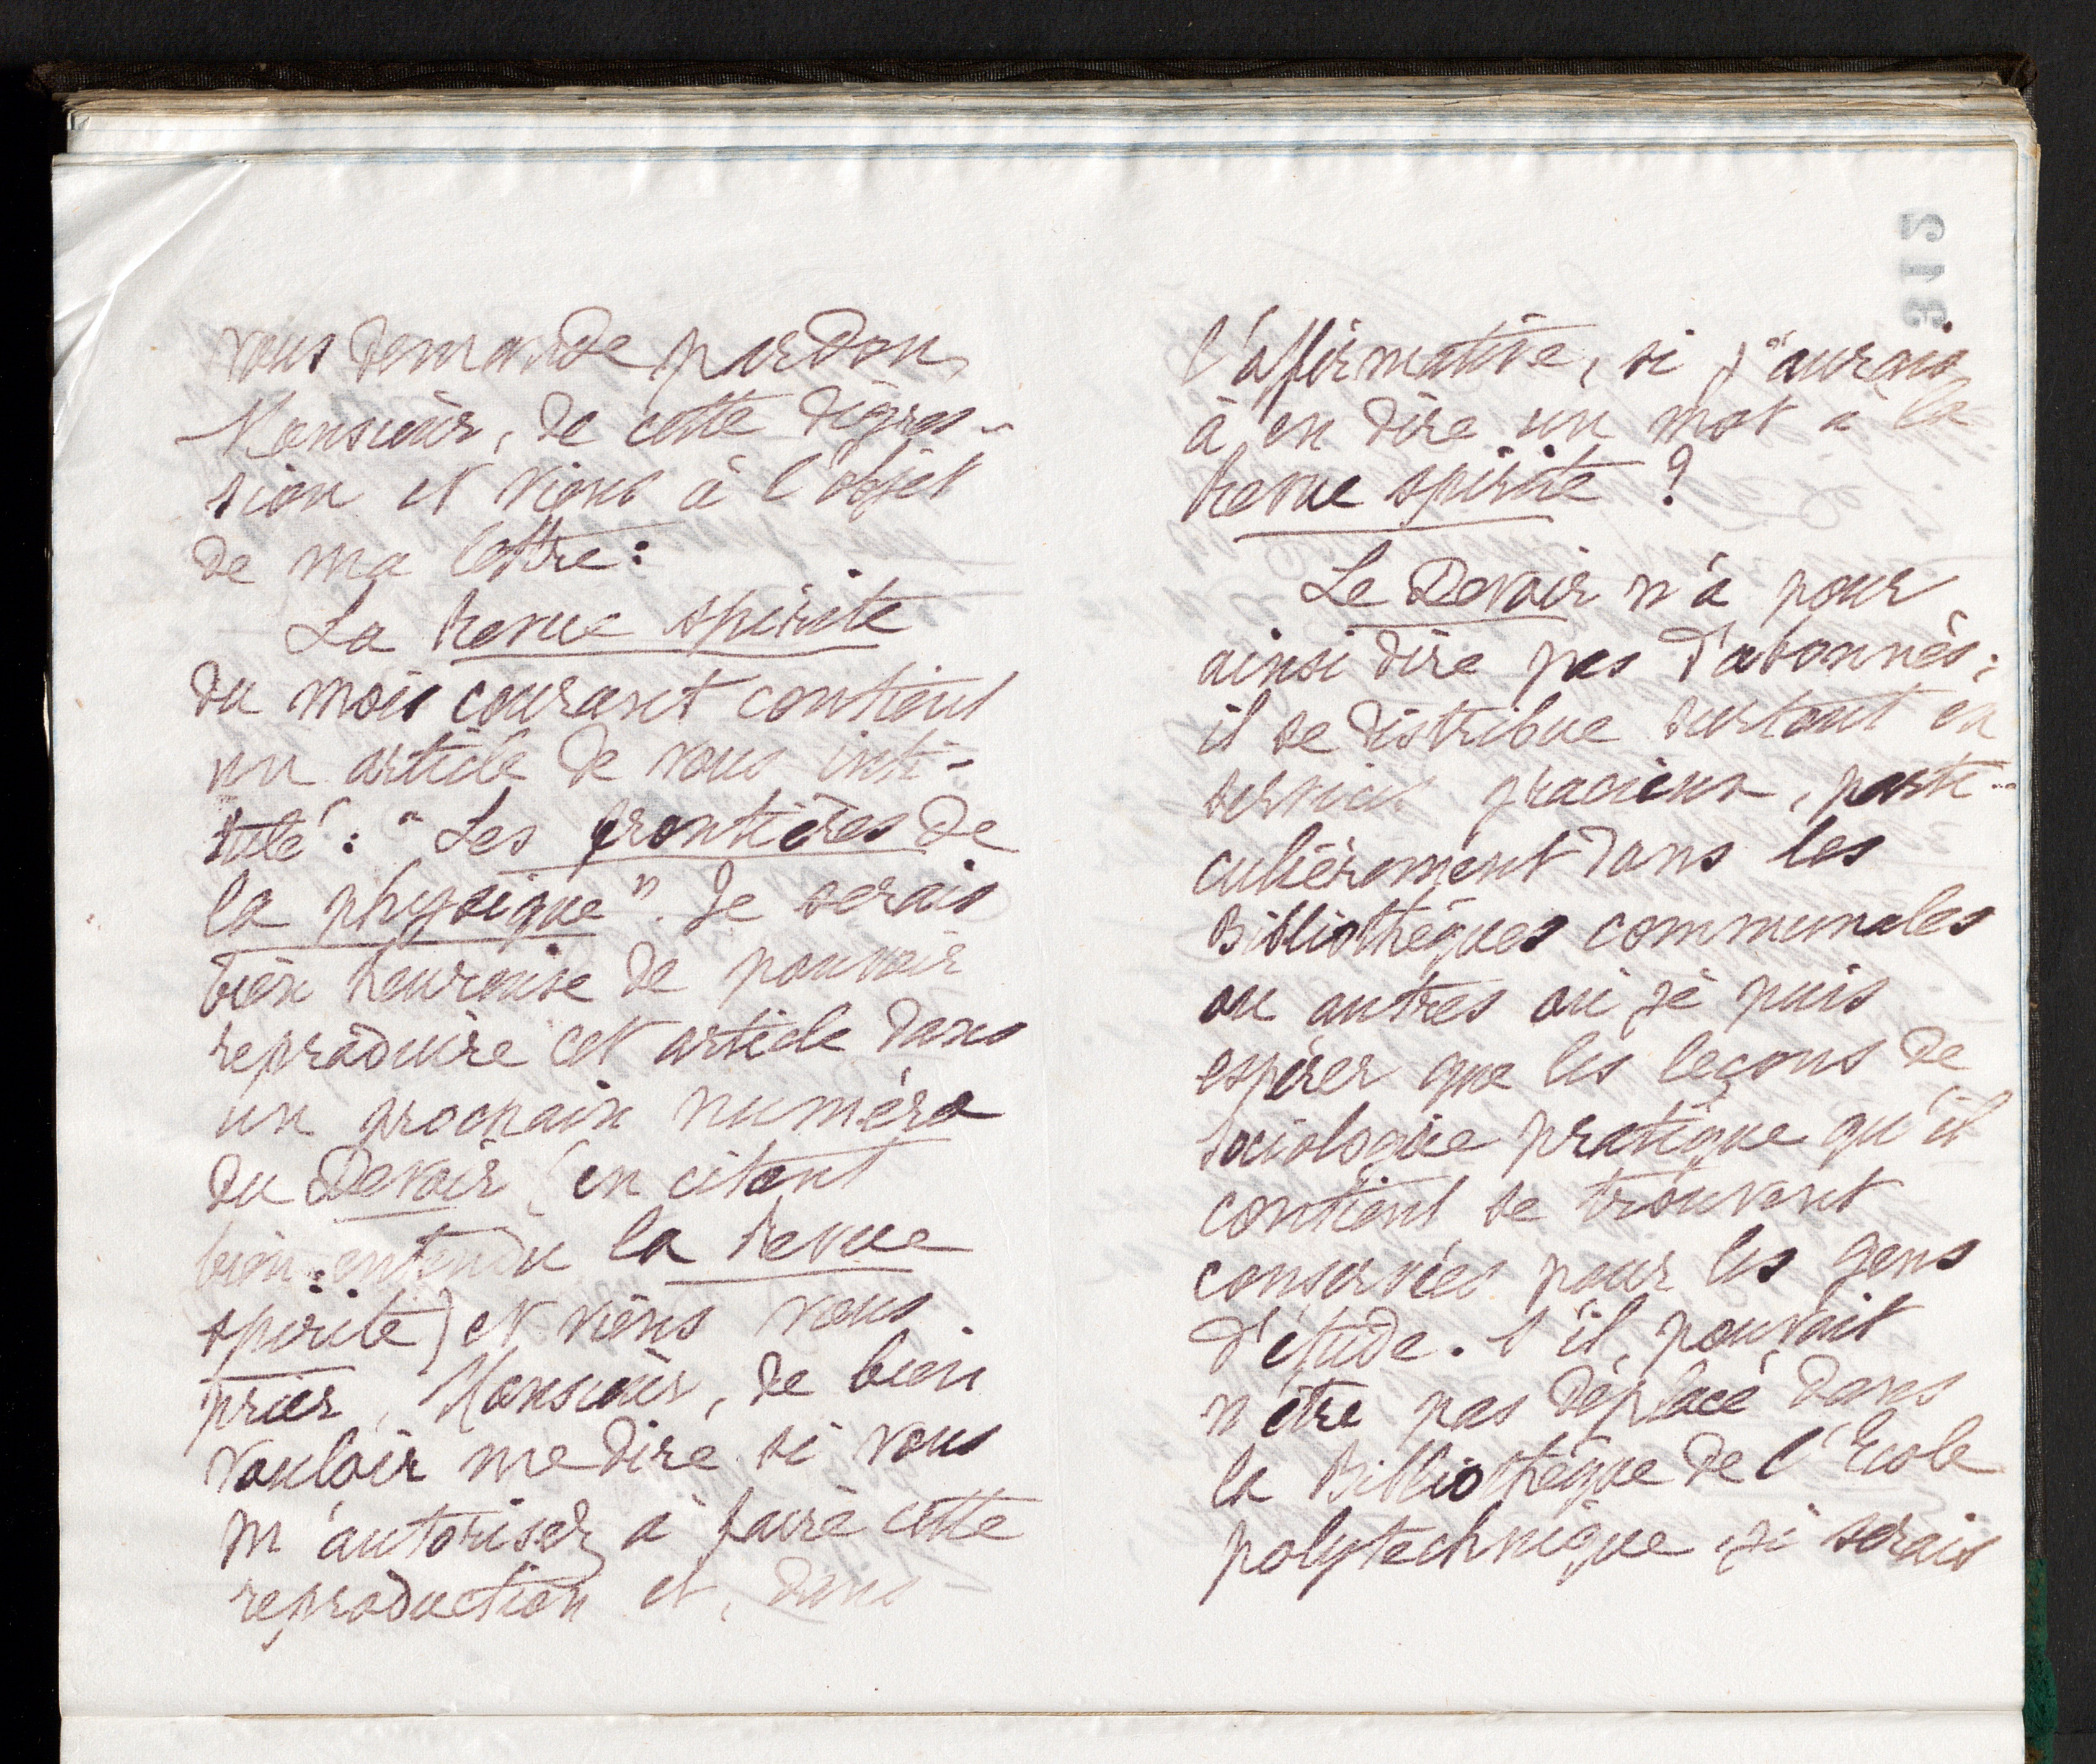 vous demande pardon,
Monsieur, de cette digres-
sion et viens à l'objet
de ma lettre :
La revue spirite
du mois courant contient
un article de vous inti-
tulé : "Les frontières de
la physique". Je serais
bien heureuse de pouvoir
reproduire cet article dans
un prochain numéro
du Devoir (en citant
bien entendu la revue
spirite) et viens vous
prier, Monsieur, de bien
vouloir me dire si vous
m'autorisez à faire cette
reproduction et, dans
l'affirmative, si j'aurais
à en dire un mot à la
revue spirite ?
Le Devoir n'a pour
ainsi dire pas d'abonnés ;
il se distribue surtout en
services gracieux, parti-
culièrement dans les
Bibliothèques communales
ou autres où je puis
espérer que les leçons de
sociologie pratique qu'il
contient se trouvent
conservées pour les gens
d'étude. S'il pouvait
n'être pas déplacé dans
la Bibliothèque de l'Ecole
polytechnique je serais
312